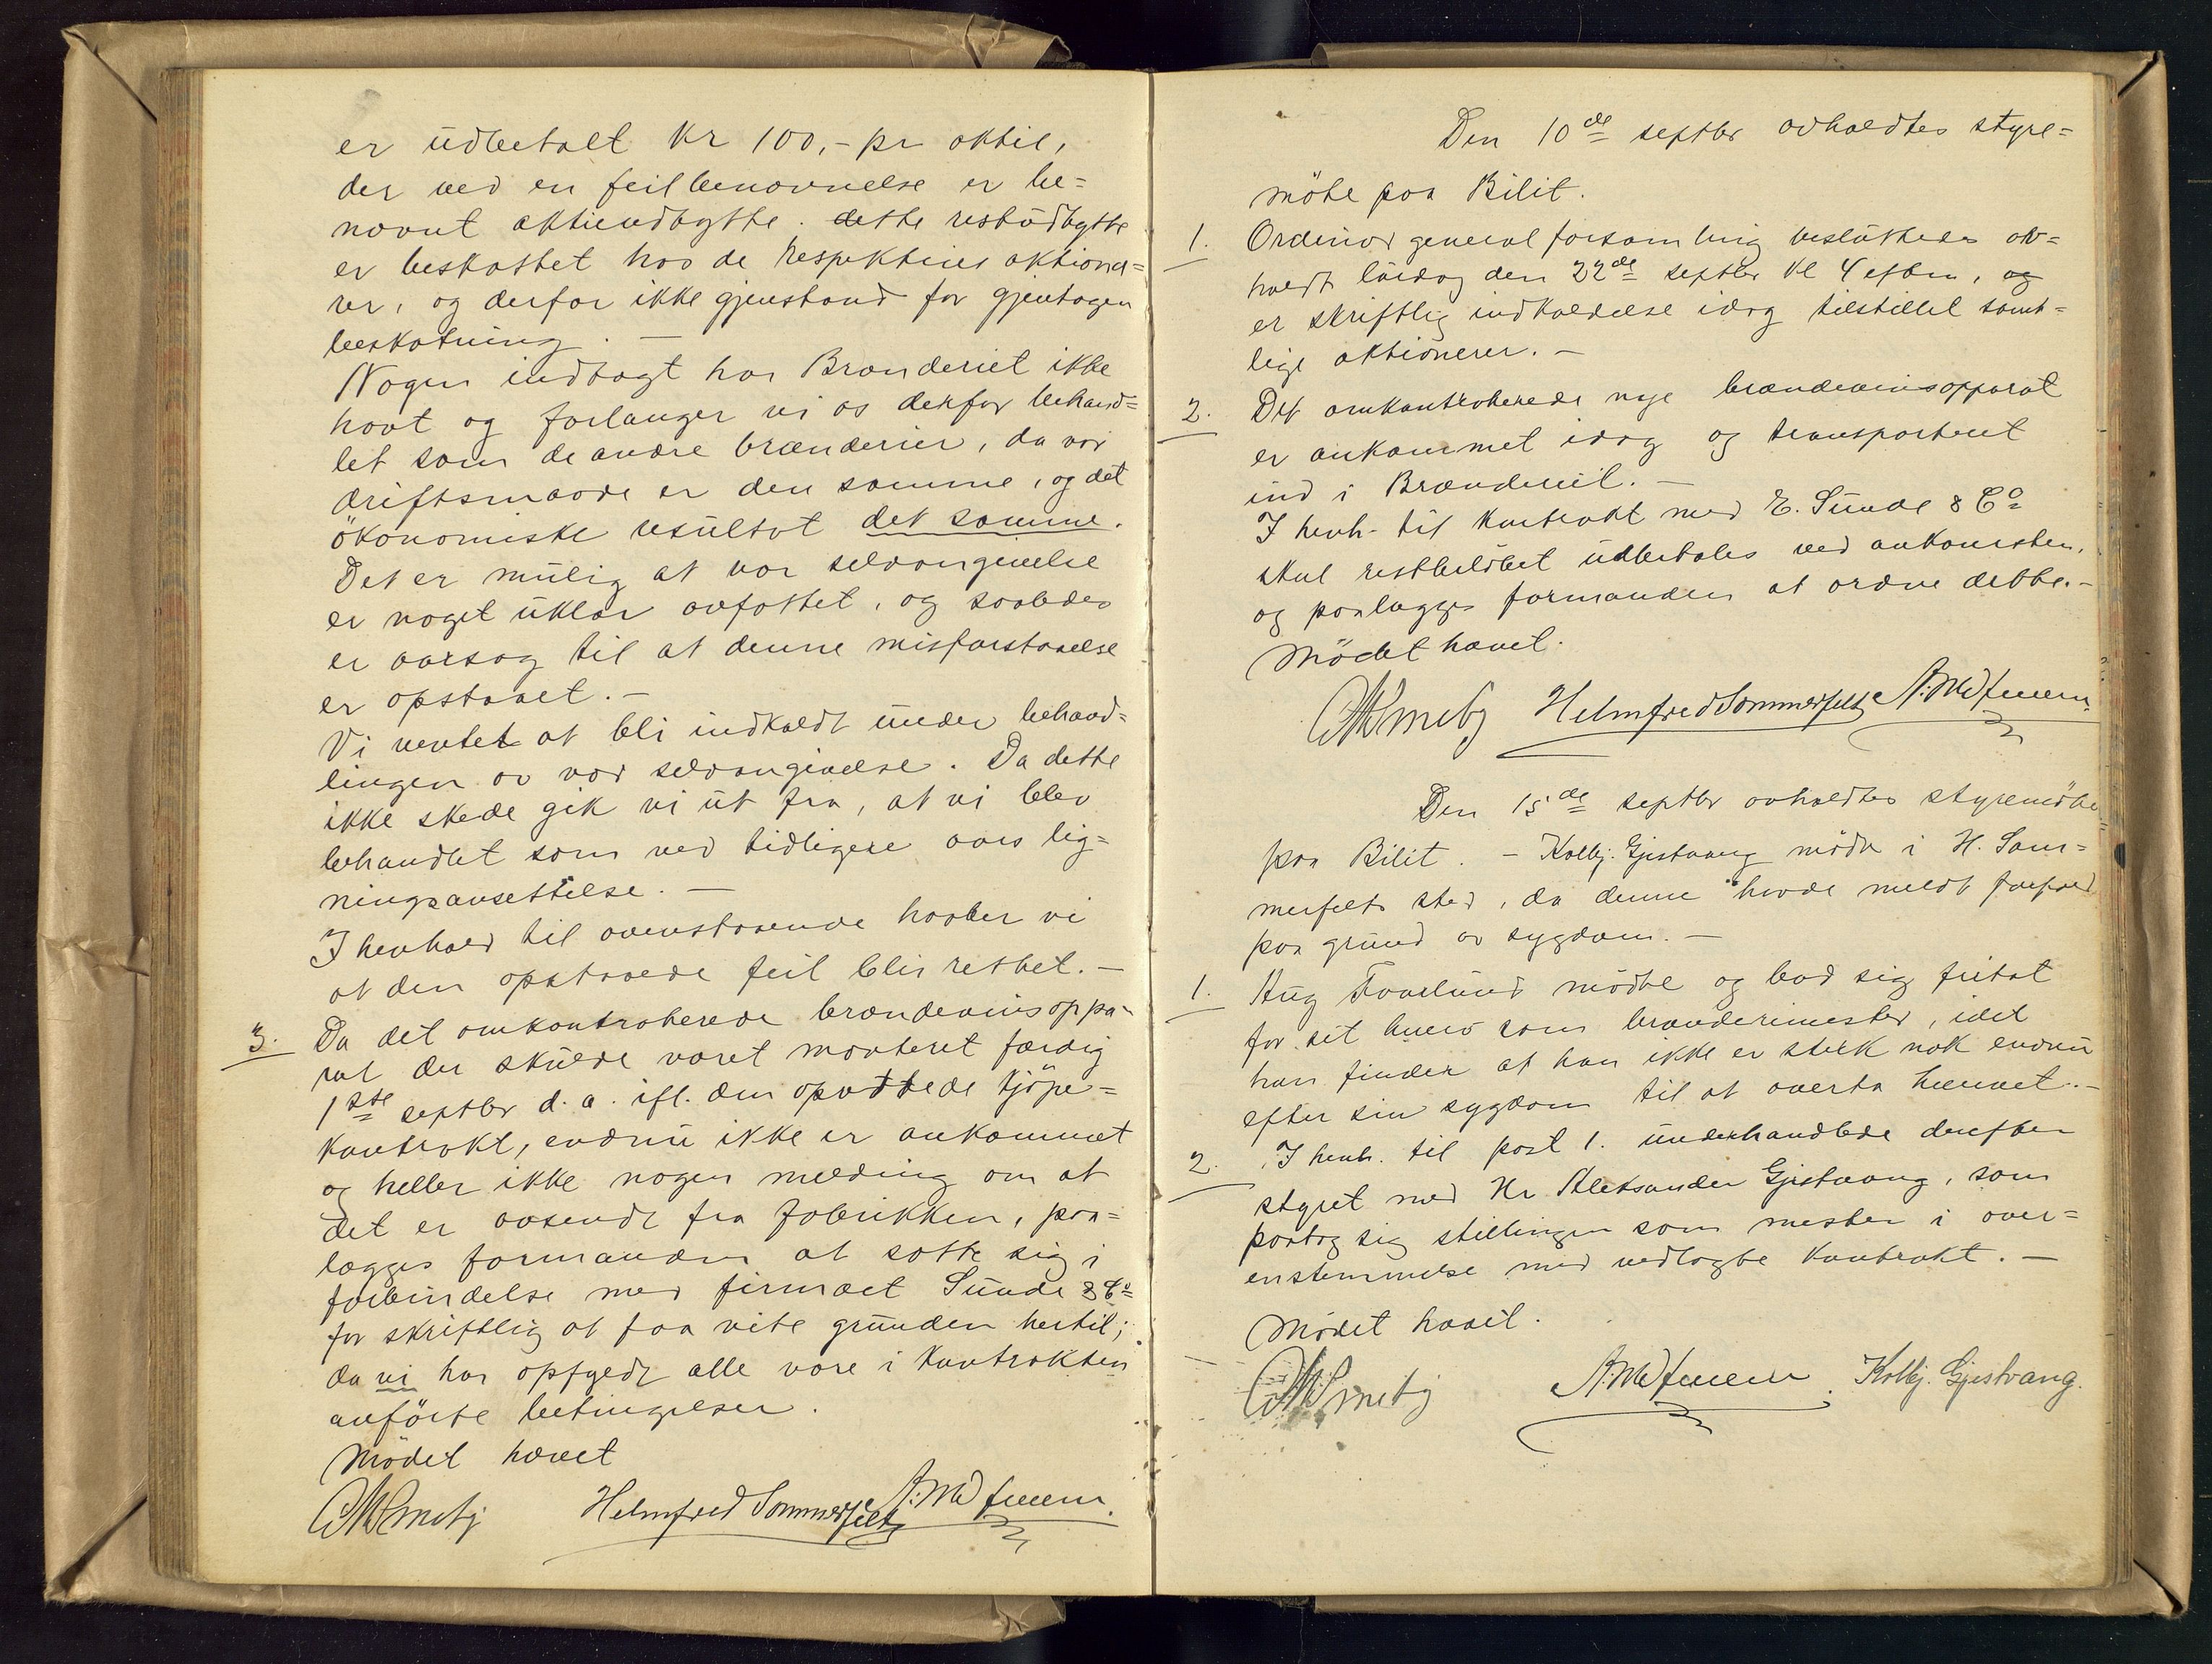 er üdbetalt Kr 100,- pr aktie,
der ved en feilbenævnelse er be=
nævnt aktieudbytte. dette restüdbytte
er beskattet hos de respektive aktionæ=
rer, og derfor ikke gjenstand for gjentagen
beskatning. —
Nogen indtægt har Brænderiet ikke
havt og forlanger vi os derfor behand=
let som de andre brænderier, da vor
driftsmaade er den samme, og det
ökonomiske resültat det samme.
Det er mülig at vor selvangivelse
er noget üklar avfattet, og saaledes
er aarsag til at denne misforstaaelse
er opstaaet. —
Vi ventet at bli indkaldt ünder behand=
lingen av vor selvangivelse. Da dette
ikke skede gik vi üt fra, at vi blev
behandlet som ved tidligere aars lig=
ningsansettelse. —
I henhold til ovenstaaende haaber vi
at den opstaaede feil blir rettet. —
3. Da det omkontraherede brændevinsoppa-
rat der skülde været monteret færdig
1ste septbr d. a. ifl. den oprettede Kjöpe=
kontrakt, endnü ikke er ankommet
og heller ikke nogen melding om at
det er avsendt fra Fabrikken, paa=
lægges formanden at sætte sig i
forbindelse med firmaet Sünde & Co
for skriftlig at faa vite gründen hertil;
da vi har opfyldt alle vore i Kontrakten
anförte betingelser.
Mödet hævet
Helmfred Sommerfelt
Den 10de septbr avholdtes styre=
möte paa Bilit.
1. Ordinær generalforsamling beslüttedes av=
holdt lördag den 22de septbr kl 4 eftm, og
er skriftlig indkaldelse idag tilstillet samt=
lige aktionerer. —
2. Det omkontraherede nye brændevinsapparat
er ankommet idag og transporteret
ind i Brænderiet. —
I henh. til Kontrakt med E. Sünde & Co
skul restbelöbet üdbetales ved ankomsten,
og paalægges formanden at ordne dette. —
Mödet hævet.
Helmfred Sommerfelt
Den 15de septbr avholdtes styremöte
paa Bilit. — Kolbj. Gjestvang mödte i H. Som=
merfelts sted, da denne havde meldt forfald
paa gründ av sygdom. —
1. Aug mödte og bad sig fritat
for sit hverv som brænderimester, idet
han finder at han ikke er sterk nok endnü
efter sin sygdom til at overta hvervet. —
2. I henh. til post 1. ünderhandlede derefter
styret med Hr Aleksander Gjestvang, som
paatog sig stillingen som mester i over=
enstemmelse med vedlagte kontrakt. —
Mödet hævet.
Kolbj. Gjestvang.